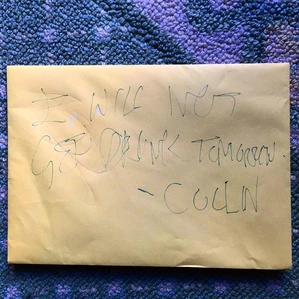 I WILL NOT
GET DRUNK TOMORROW.
- COLLIN